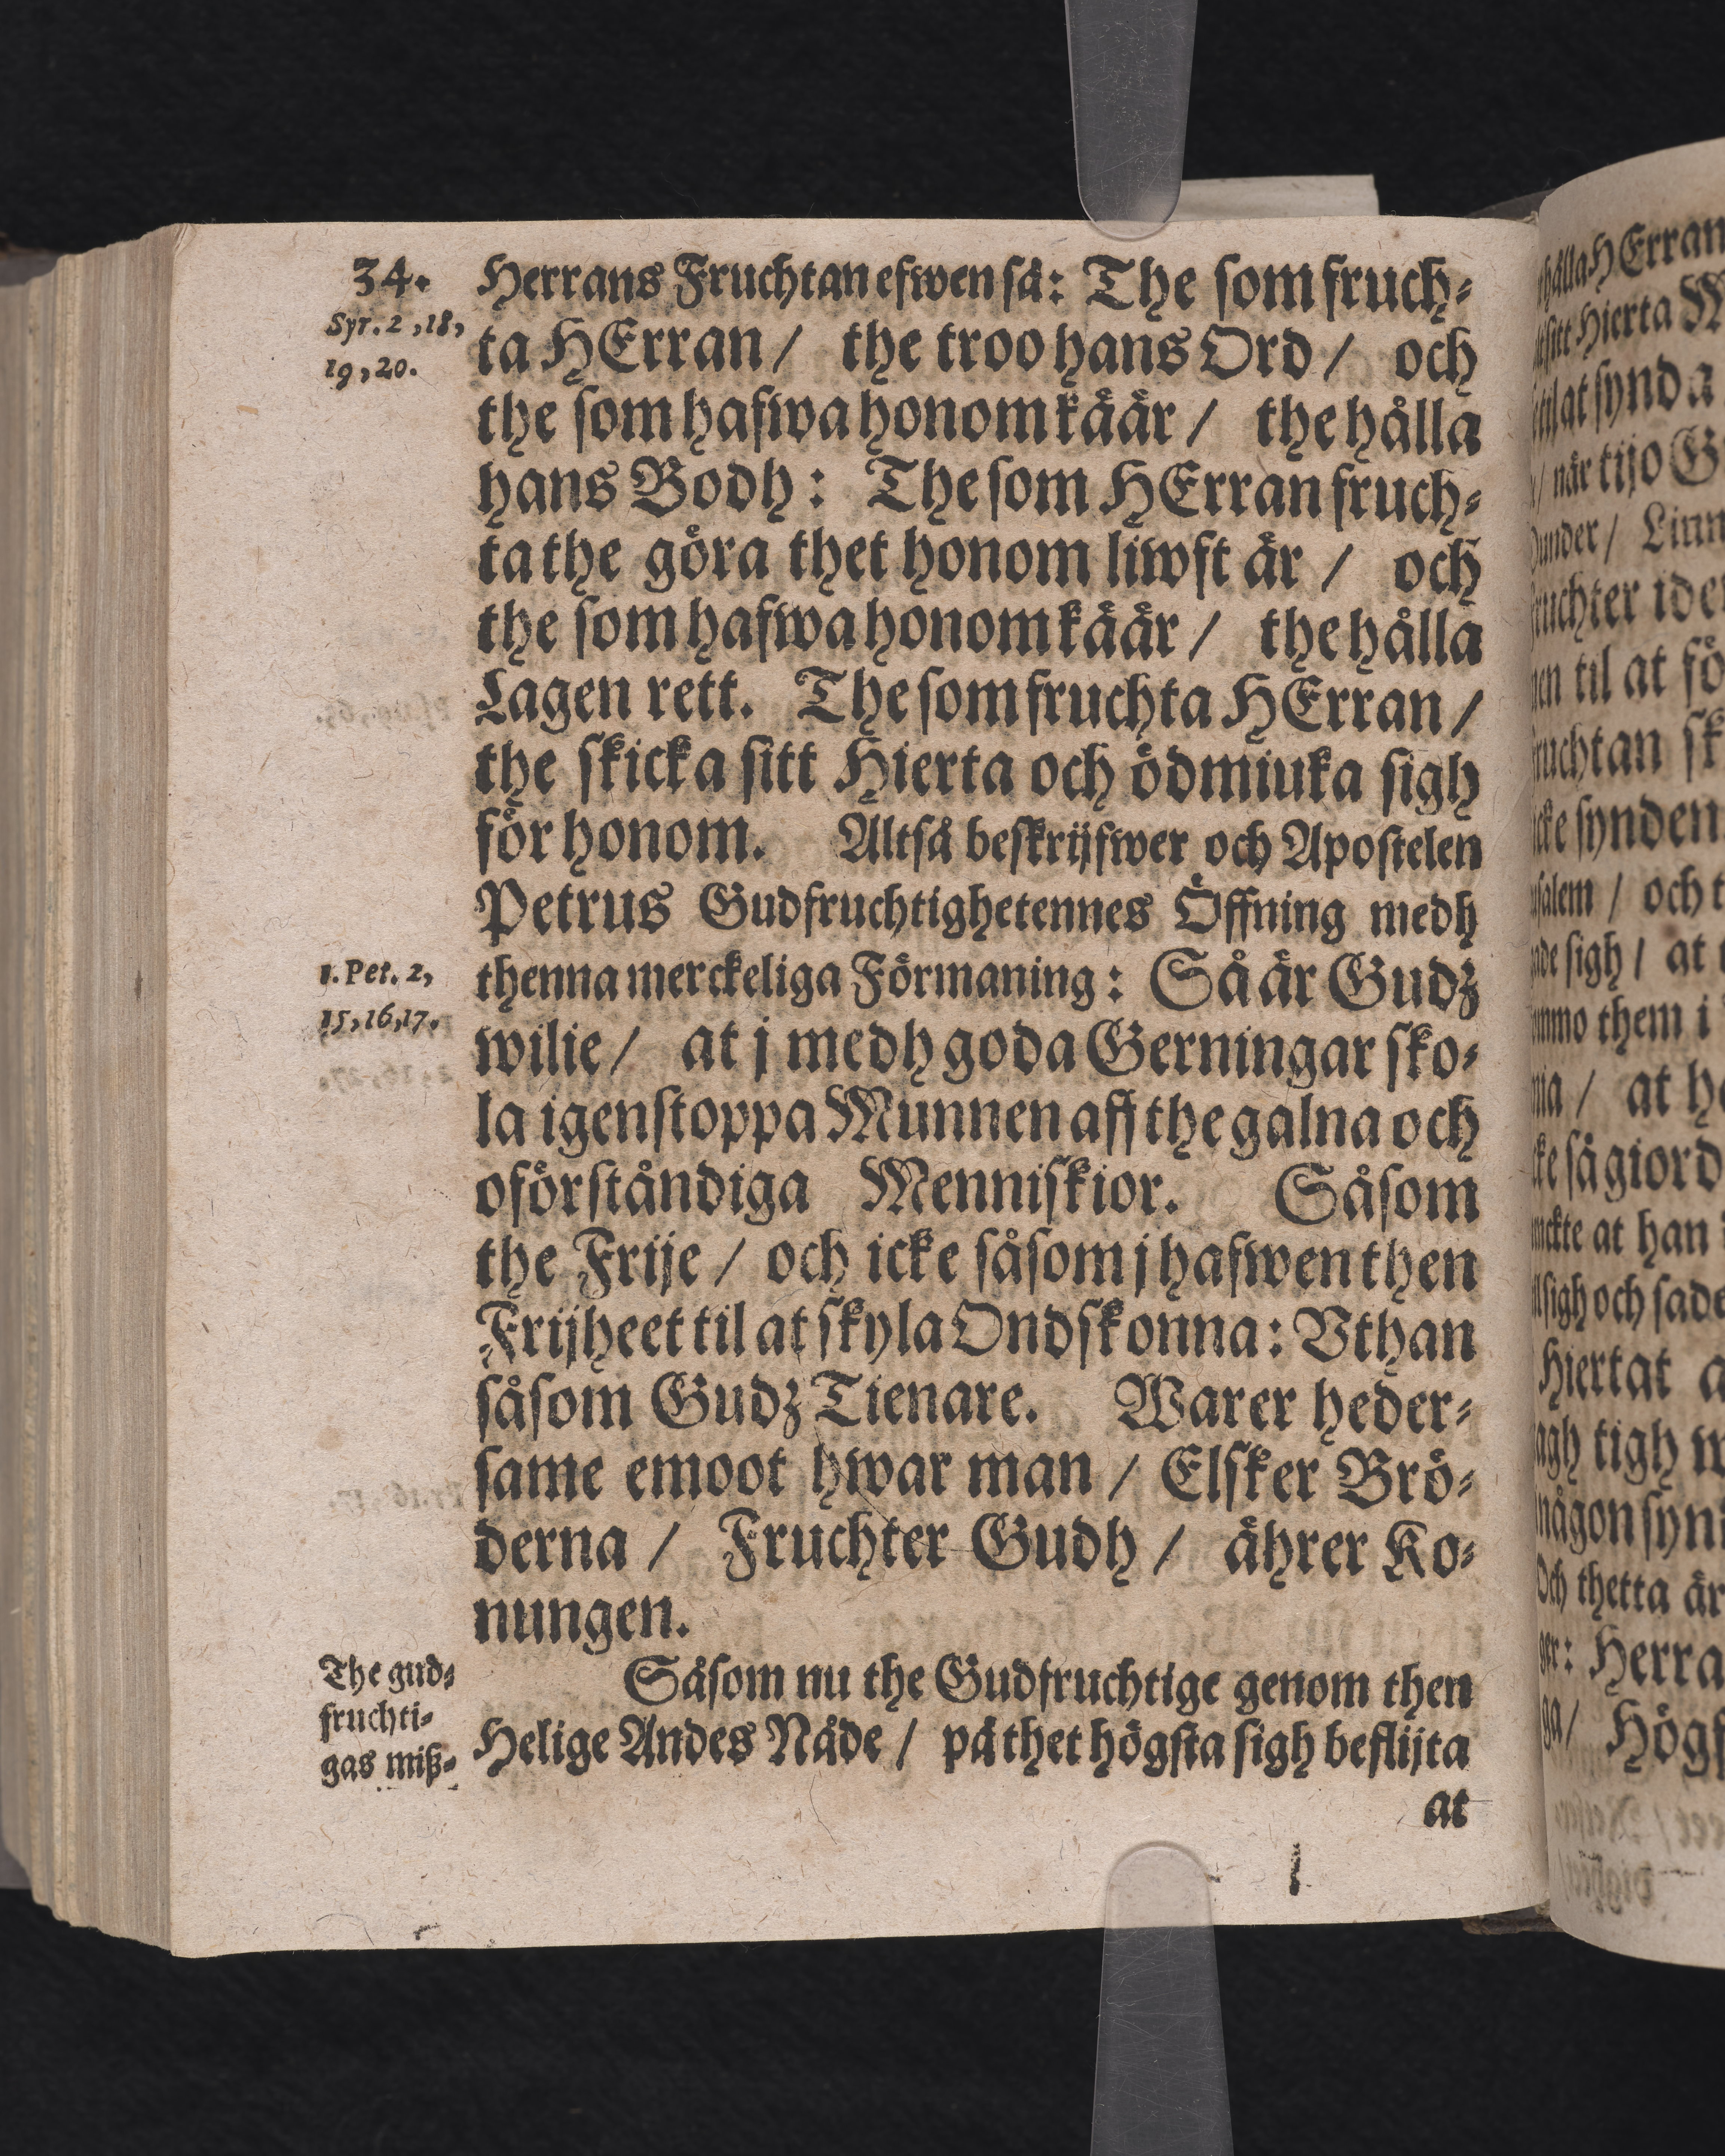 34.
Syr. 2, 18,
19, 20.
Herrans Fruchtan efwen så: The som fruch-
ta HErran / the troo hans Ord / och
the som hafwa honom käär / the hålla
hans Bodh: The som HErran fruch-
ta the göra thet honom liwft är / och
the som hafwa honom käär / the hålla
Lagen rett. The som fruchta HErran /
the skicka sitt Hierta och ödmiuka sigh
för honom. Altså beskrijfwer och Apostelen
Petrus Gudfruchtighetennes Öffning medh
1. Pet. 2,
15, 16, 17.
thenna merckeliga Förmaning: Så är Gudz
wilie / at j medh goda Gerningar sko-
la igenstoppa Munnen aff the galna och
oförståndiga Menniskior. Såsom
the Frije / och icke såsom j hafwen then
Frijheet til at skyla Ondskonna: Vthan
såsom Gudz Tienare. Warer heder-
same emoot hwar man / Elsker Brö-
derna / Fruchter Gudh / ährer Ko-
nungen.
The gud-
fruchti-
gas miß-
Såsom nu the Gudfruchtige genom then
Helige Andes Nåde / på thet högsta sigh beflijta
at
hålla HErran
sitt Hierta
til at synda
/ når tijo
Dunder /
fruchter
til at
fruchtan
icke synden
/ och
sigh / at
them i
/ at
så giord
at han
sigh och sade
Hiertat
tigh
någon
Och thetta är